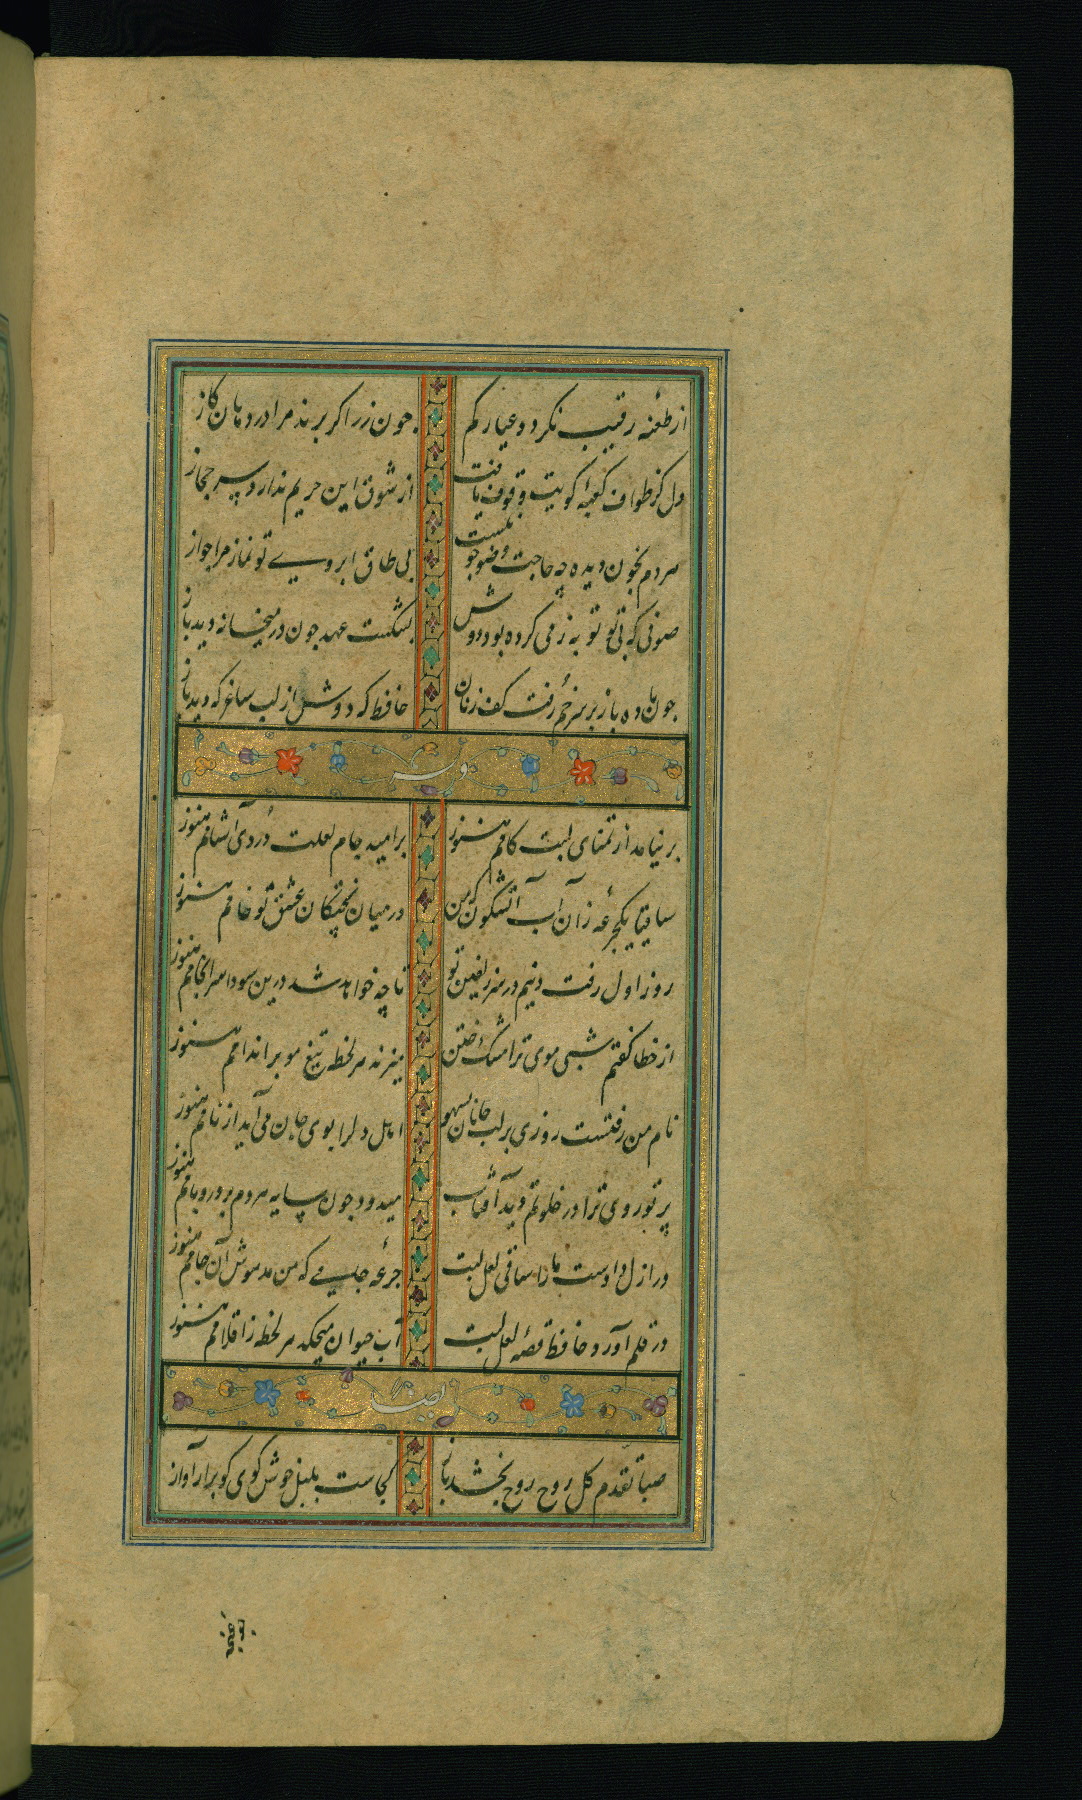 از طعنه رقیب نکردد عیار کم جون زر اکر برند مرا در دهان کاز
دل کز طواف کعبه کویت وقوف یافت از شوق این حریم ندارد سر حجاز
هر دم بخون دیده چه حاجت وضو جو نیست بی طاق ابروی تو نماز مرا جواز
صوفی که بی تو توبه ز می کرده بود دوش بشکست عهد جون در میخانه دید باز
جون باده باز بر سر خم رفت کف زنان حافظ که دوش از لب ساغر که دید باز
وله
بر نیامد از تمنای لبت کامم هنوز بر امید جام لعلت دُردی آشامم هنوز
ساقیا یکجرعه زان آب آتشکون که من در میان پختکان عشق تو خامم هنوز
روز اول رفت دینم در سر زلفین تو تا چه خواهد شد درین سودا سرانجامم هنوز
از خطا کفتم شبی موی ترا مشک ختن میزند هر لحظه تیغ مو بر اندامم هنوز
نام من رفتست روزی بر لب جانان بسهو اهل دلرا بوی جان می آید از نامم هنوز
پرتو روی ترا در خلوتم دید آفتاب میدود جون سایه هر دم بر در و بامم هنوز
در ازل دادست مارا ساقی لعل لبت جرعه جامی که من مدهوش آن جامم هنوز
در قلم آورد حافظ قصه لعل لبت آب حیوان میچکد هر لحظه ز اقلامم هنوز
ایضا
صبا بمقدم کل روح روح بخشد باز کجاست بلبل خوش کوی کو برار آواز